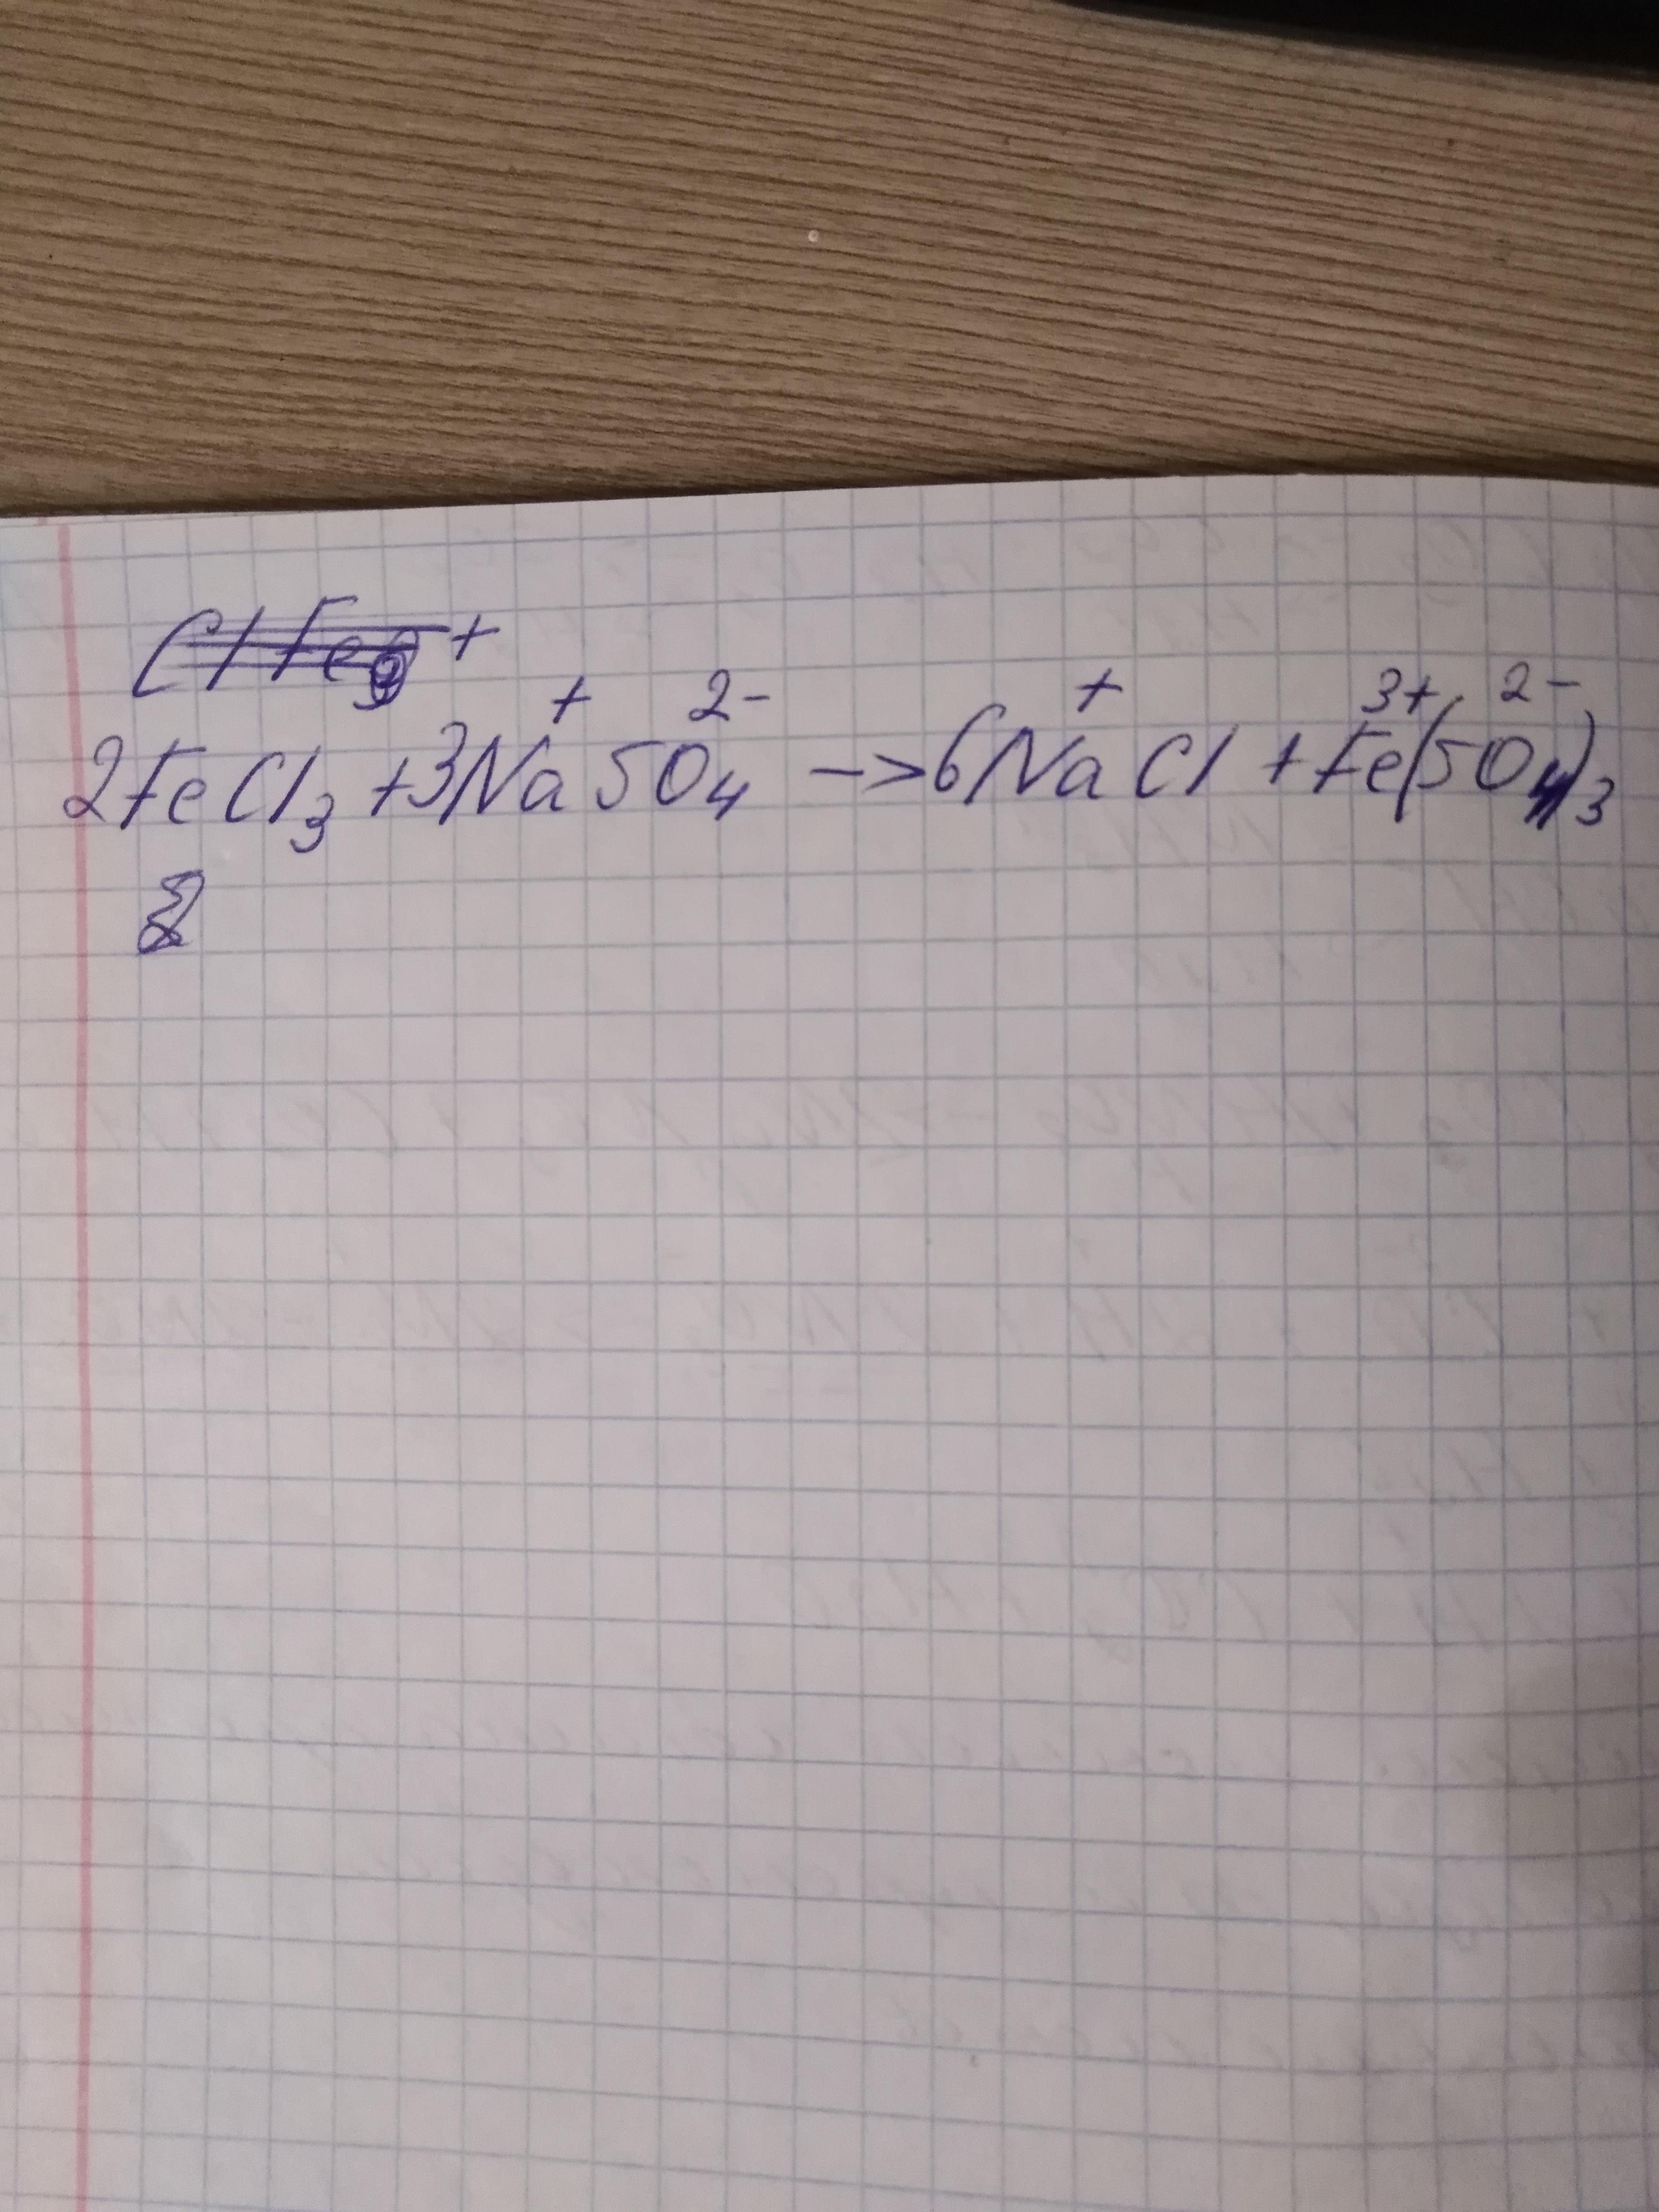 2FeCl₃ + 3Na⁺SO₄²⁻ -> 6Na⁺Cl + Fe³⁺(SO₄²⁻)₃